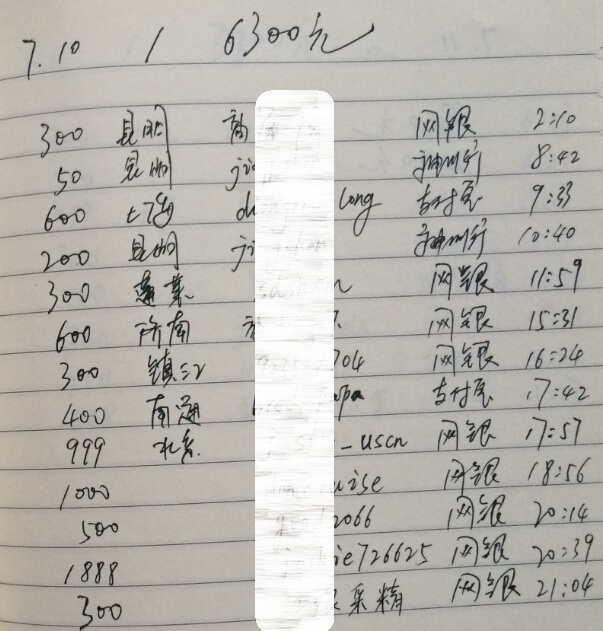 7.10 1 6300元
300 昆明 网银 2:10
50 昆明 ji 神州行 8:42
600 上海 d long 支付宝 9:33
200 昆明 ji 神州行 10:40
300 蓬莱 n 网银 11:59
600 济南 网银 15:31
300 镇江 704 网银 16:24
400 南通 opa 支付宝 17:42
999 北京 _uscn 网银 17:57
1000 uise 网银 18:56
500 2066 网银 20:14
1888 ie726625 网银 20:39
300 采精 网银 21:04